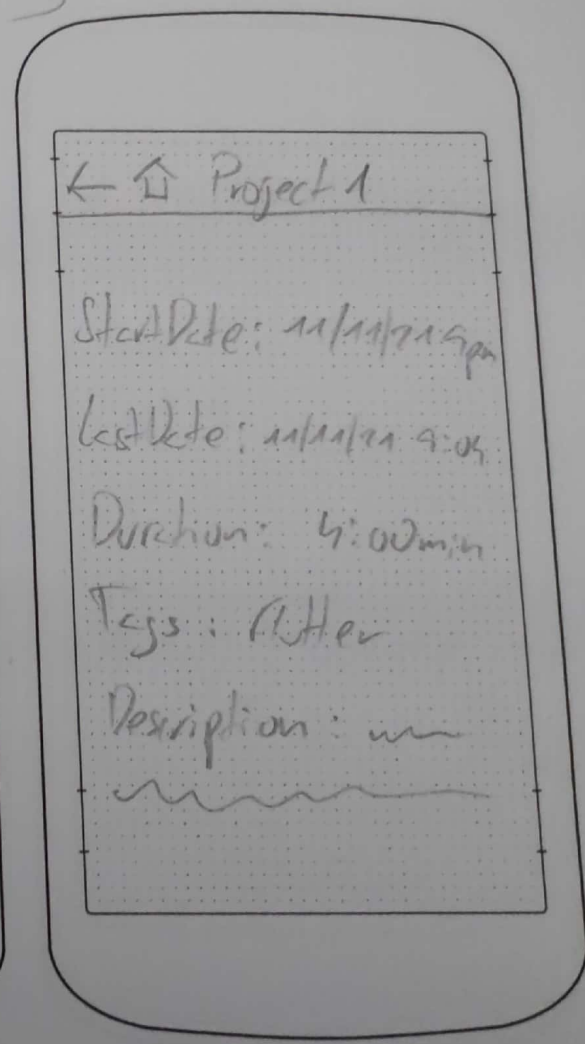 Project 1
StartDate: 11/11/21 9pm
LastDate: 11/11/21 9:04
Duration: 4:00min
Tags: Flutter
Description: